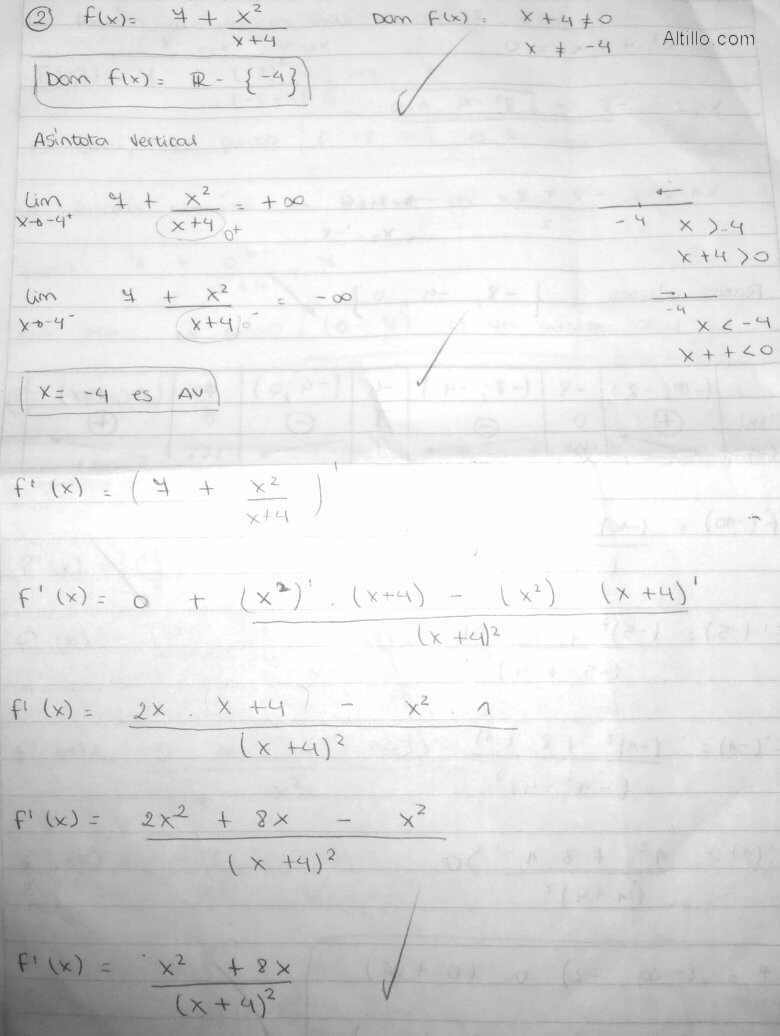 ② f(x) = 7 + x²/(x+4) Dom f(x) = x + 4 ≠ 0
x ≠ -4
Altillo.com
Dom f(x) = ℝ - {-4}
Asíntota vertical
Lim x→-4⁺ 7 + x²/(x+4) 0⁺ = +∞
-4 x > -4
x + 4 > 0
Lim x→-4⁻ 7 + x²/(x+4) 0⁻ = -∞
-4
x < -4
x + + < 0
x = -4 es AV
f' (x) = (7 + x²/(x+4))'
f' (x) = 0 + ((x²)' . (x+4) - (x²) (x+4)')/(x+4)²
f' (x) = (2x . x + 4 - x² . 1)/(x+4)²
f' (x) = (2x² + 8x - x²)/(x+4)²
f' (x) = (x² + 8x)/(x+4)²